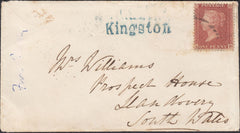 Kingston
Mrs Williams
Prospect House
Llandovery
South Wales